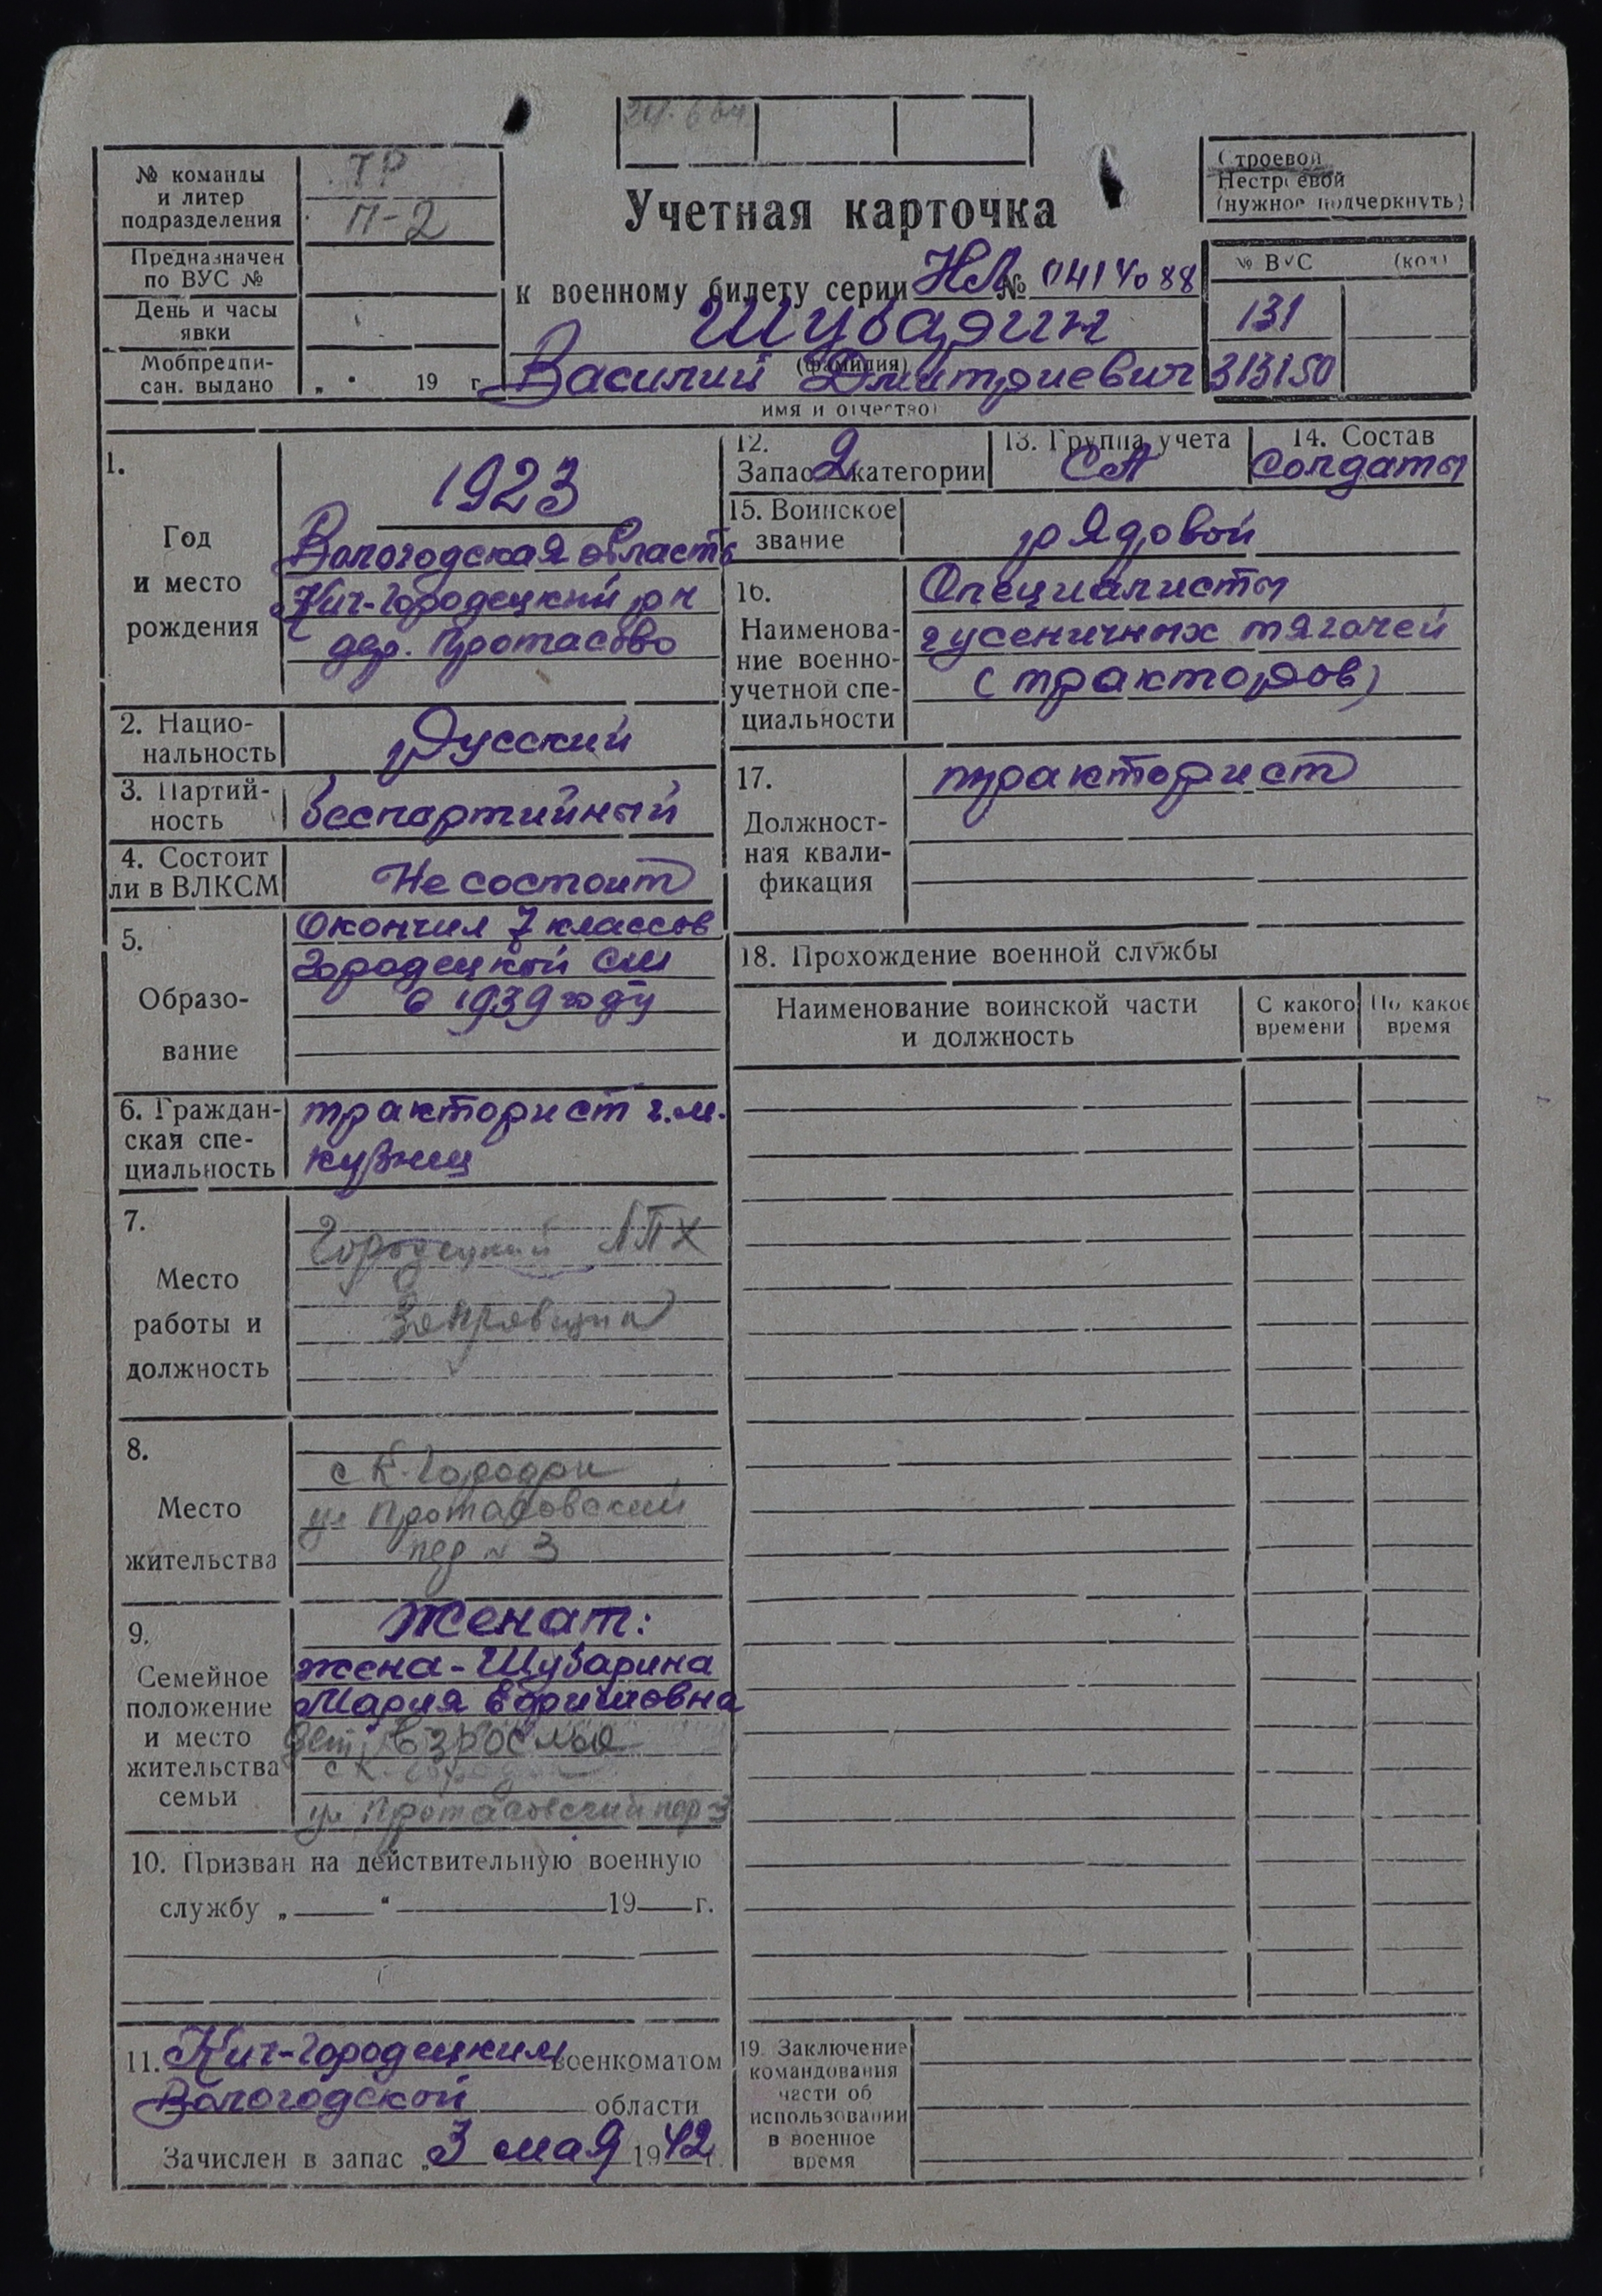 № команды
и литер
подразделения
ТР
П-2
Предназначен
по ВУС №
День и часы
явки
Мобпредпи-
сан. выдано
„ " 19 г.
Учетная карточка
к военному билету серии НЛ № 0414088
Шубарин
(фамилия)
Василий Дмитриевич
(имя и отчество)
Строевой
Нестроевой
(нужное подчеркнуть)
№ ВУС (код)
131
313150
1.
Год
и место
рождения
1923
Вологодская область
Кич-Городецкий р-н
дер. Протасово
2. Нацио-
нальность
русский
3. Партий-
ность
беспартийный
4. Состоит
ли в ВЛКСМ
Не состоит
5.
Образо-
вание
Окончил 7 классов
Городецкой сш
в 1939 году
6. Граждан-
ская спе-
циальность
тракторист г.м.
кузнец
7.
Место
работы и
должность
Городецкий ЛПХ
Заправщик
8.
Место
жительства
с К-Городок
ул Протасовский
пер № 3
9.
Семейное
положение
и место
жительства
семьи
Женат:
жена - Шубарина
Мария Ефимовна
дети взрослые
с К-Городок
ул Протасовский пер 3
10. Призван на действительную военную
службу „ " 19 г.
11. Кич-Городецким военкоматом
Вологодской области
Зачислен в запас „3 мая 1942 г.
12.
Запас 2 категории
13. Группа учета
СА
14. Состав
солдаты
15. Воинское
звание
рядовой
16.
Наименова-
ние военно-
учетной спе-
циальности
Специалисты
гусеничных тягачей
(тракторов)
17.
Должност-
ная квали-
фикация
тракторист
18. Прохождение военной службы
Наименование воинской части
и должность
С какого
времени
По какое
время
19. Заключение
командования
части об
использовании
в военное
время